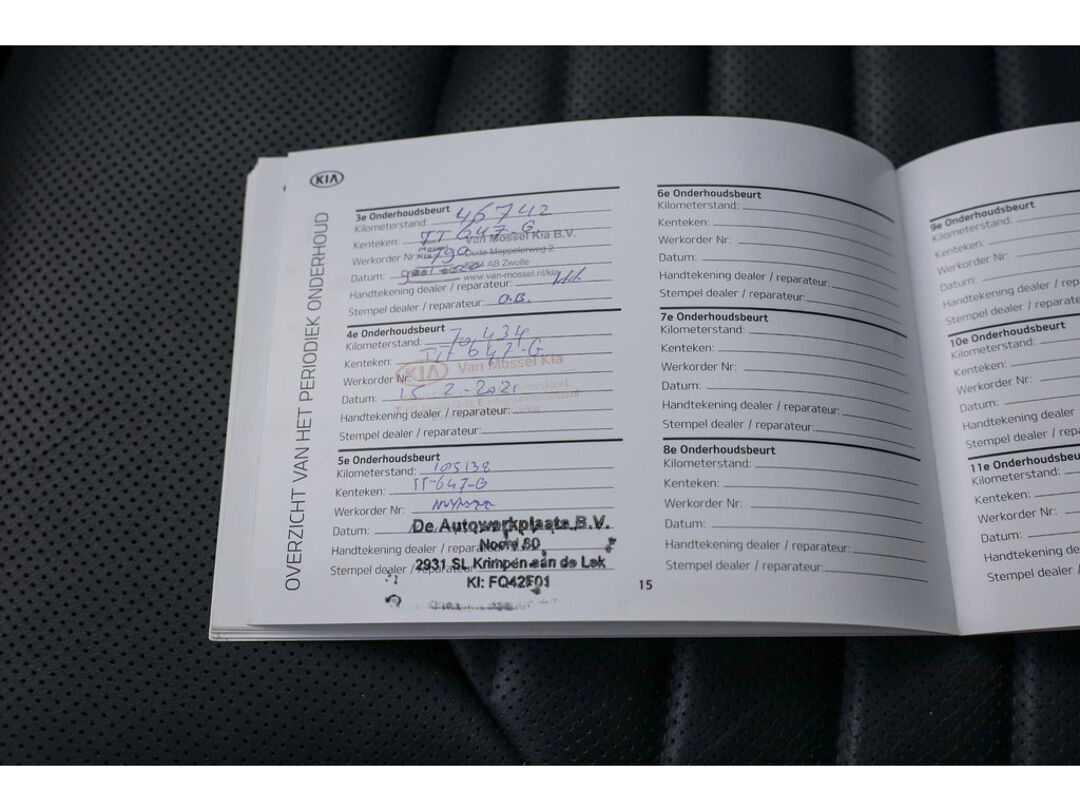 KIA
OVERZICHT VAN HET PERIODIEK ONDERHOUD
3e Onderhoudsbeurt
Kilometerstand: 46742
Kenteken: TT 647-G
Van Mossel Kia B.V.
Werkorder Nr:
Oude Meppelerweg 2
AB Zwolle
Datum:
www.van-mossel.nl/kia
Handtekening dealer / reparateur:
Stempel dealer / reparateur: O.B.
4e Onderhoudsbeurt
Kilometerstand: 70434
Kenteken: TT 647-G
KIA Van Mossel Kia
Werkorder Nr:
Datum: 15-2-2021
Handtekening dealer / reparateur:
Stempel dealer / reparateur:
5e Onderhoudsbeurt
Kilometerstand: 105138
Kenteken: TT-647-G
Werkorder Nr:
Datum:
De Autowerkplaats B.V.
Noord 80
Handtekening dealer /
2931 SL Krimpen aan de Lek
Stempel dealer / reparateur:
KI: FQ42F01
6e Onderhoudsbeurt
Kilometerstand:
Kenteken:
Werkorder Nr:
Datum:
Handtekening dealer / reparateur:
Stempel dealer / reparateur:
7e Onderhoudsbeurt
Kilometerstand:
Kenteken:
Werkorder Nr:
Datum:
Handtekening dealer / reparateur:
Stempel dealer / reparateur:
8e Onderhoudsbeurt
Kilometerstand:
Kenteken:
Werkorder Nr:
Datum:
Handtekening dealer / reparateur:
Stempel dealer / reparateur:
15
9e Onderhoudsbeurt
Kilometerstand:
Kenteken:
Werkorder Nr:
Datum:
Handtekening dealer / rep
Stempel dealer / reparate
10e Onderhoudsbeurt
Kilometerstand:
Kenteken:
Werkorder Nr:
Datum:
Handtekening dealer
Stempel dealer / repar
11e Onderhoudsbeu
Kilometerstand:
Kenteken:
Werkorder Nr:
Datum:
Handtekening de
Stempel dealer /